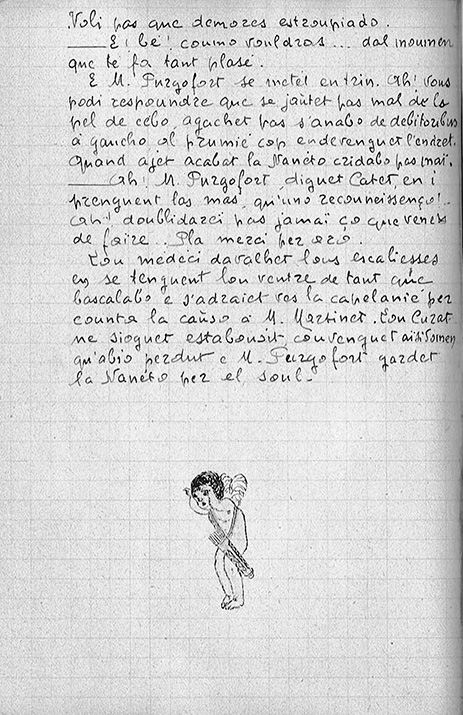 Voli pas que demores estroupiado.
— E! bé! coumo vouldras... dal moumen
que te fa tant plasé.
E M. Purgofort se metet en trin. Ah! vous
podi respoundre que se jautet pas mal de la
pel de cebo, agachet pas s'anabo de debitoribus
à gaucho al prumiè cop endevenguet l'endret.
Quand ajet acabat la Naneto cridabo pas mai.
— Ah! M. Purgofort, diguet Catet, en i
prenguent las mas, qu'uno reconneissenço!..
Ah! doublidarei pas jamai ço que venès
de faire.. Pla merci per oro.
Lou medeci davalhet lous escaliesses
en se tenguent lou ventre de tant que
bascalabo e s'adraiet ves la capelanié per
counta la causo à M. Martinet. Lou Curat
ne sioguet estabousit, couvenguet aisidomen
qu'abio perdut e M. Purgofort gardet
la Naneto per el soul.